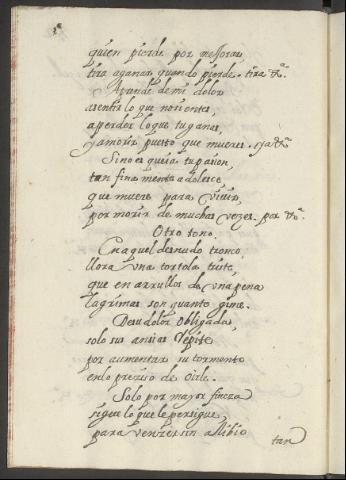 quien pierde por mejorar
tira a ganar quando pierde. tira &ª.
Aprende de mi dolor
a sentir lo que no sientes,
a perder lo que tu ganas,
y a morir puesto que mueres. y a &ª
Sino es que ia tu pasion,
tan fina mente adolece
que muere para viuir,
por morir de muchas vezes. por &ª.
Otro tono.
En aquel desnudo tronco
llora vna tortola triste,
que en arrullos de vna pena
lagrimas son quanto gime.
De su dolor obligada,
solo sus ansias repite
por aumentar su tormento
en lo preciso de oirle.
Solo por mayor fineza
sigue lo que le persigue
para vencer sin alibio
tan